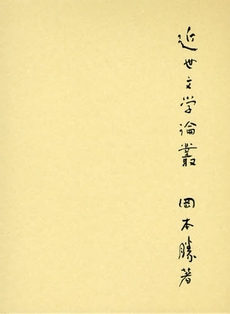 近世文学論叢　岡本勝著